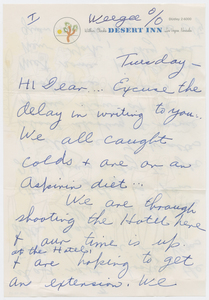 I Weegee %
Wilbur Clark's DESERT INN Las Vegas, Nevada
Tuesday—
Hi Dear... Excuse the
delay in writing to you..
We all caught
colds & are on an
Aspirin diet...
We are through
shooting the Hotel here
& our time is up
at the Hotel
& are hoping to get
an extension. We